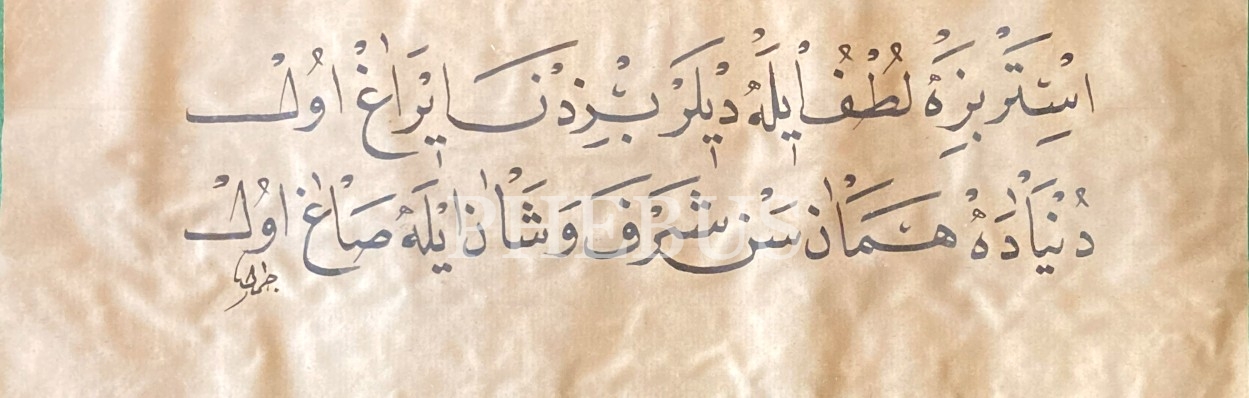 اِسْتَر بِزَهْ لُطْفُ اِيلَهْ دِيلَرْ بِزْدَنْ اِيرَاغْ اُولْ
دُنْيَادَهْ هَمَانْ سَنْ شَرَفْ وَشَانْ اِيلَهْ صَاغْ اُولْ
PHEBUS